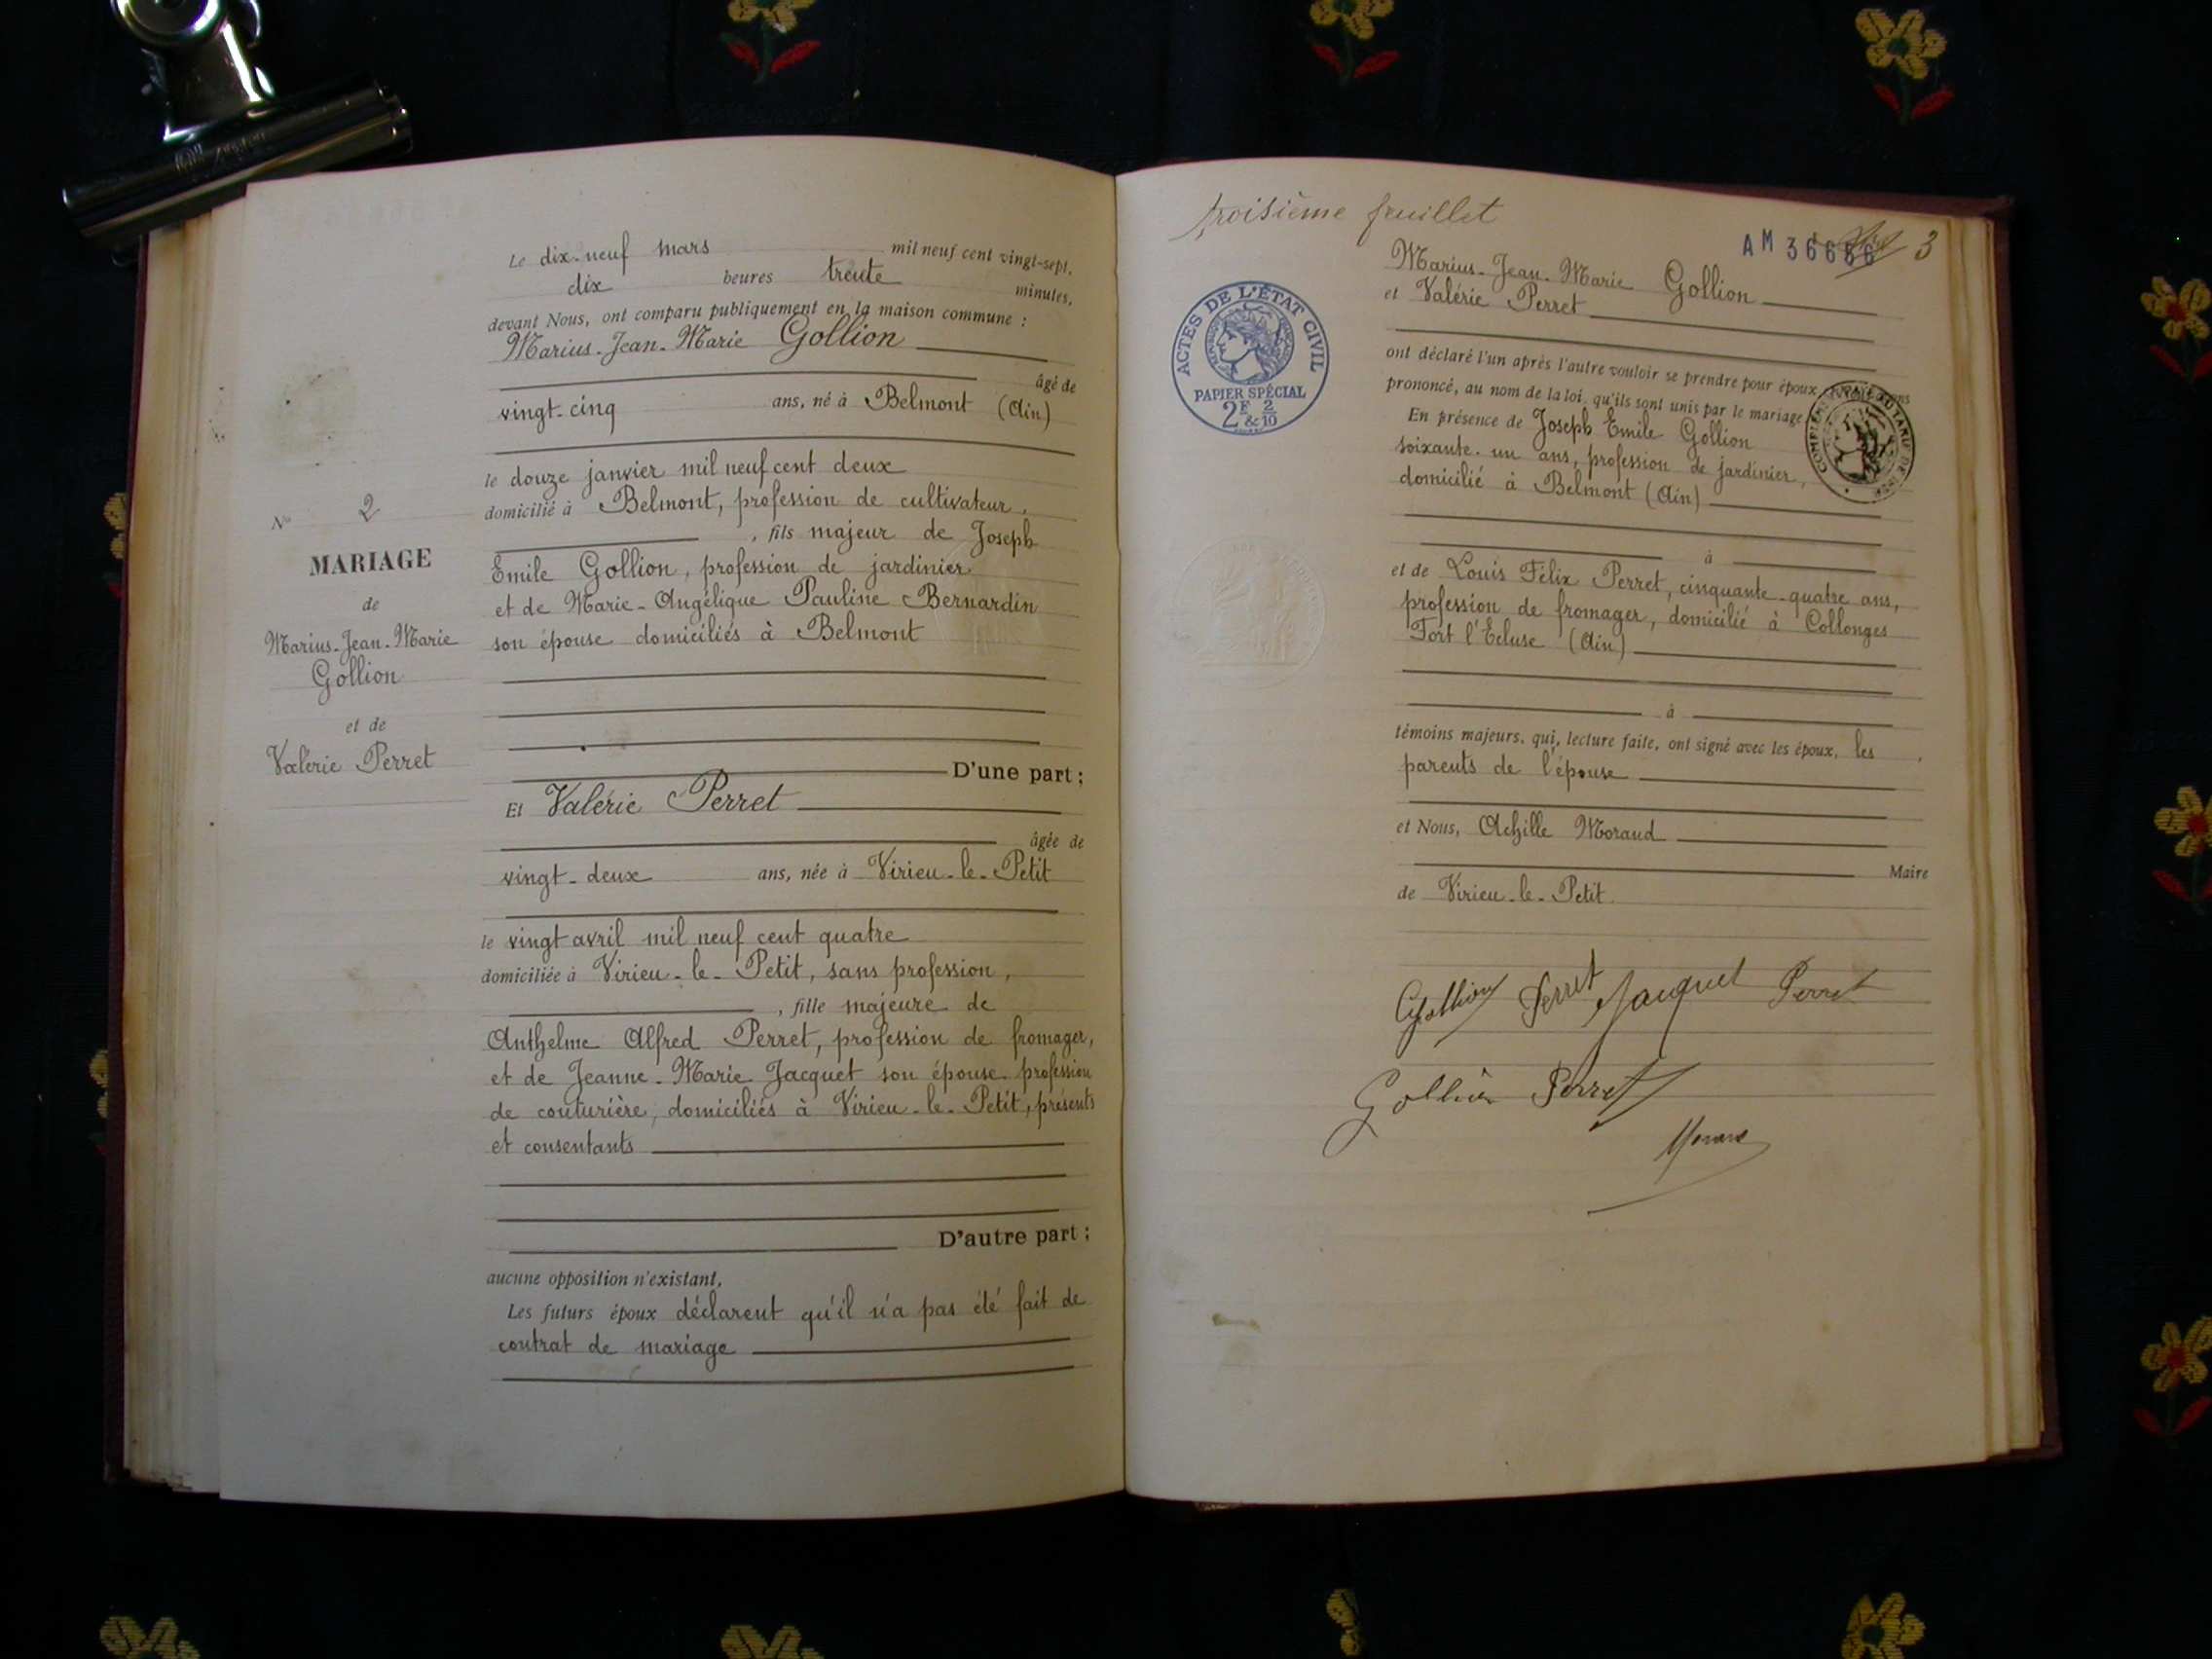 Le dix-neuf mars mil neuf cent vingt-sept,
dix heures trente minutes,
devant Nous, ont comparu publiquement en la maison commune :
Marius-Jean-Marie Gollion
âgé de
vingt-cinq ans, né à Belmont (Ain)
le douze janvier mil neuf cent deux
domicilié à Belmont, profession de cultivateur,
, fils majeur de Joseph
Emile Gollion, profession de jardinier
et de Marie-Angélique Pauline Bernardin
son épouse domiciliés à Belmont
D'une part ;
Et Valérie Perret
âgée de
vingt-deux ans, née à Virieu-le-Petit
le vingt avril mil neuf cent quatre
domiciliée à Virieu-le-Petit, sans profession,
, fille majeure de
Anthelme Alfred Perret, profession de fromager,
et de Jeanne-Marie Jacquet son épouse profession
de couturière, domiciliés à Virieu-le-Petit, présents
et consentants
D'autre part ;
aucune opposition n'existant,
Les futurs époux déclarent qu'il n'a pas été fait de
contrat de mariage
N° 2
MARIAGE
de
Marius-Jean-Marie
Gollion
et de
Valérie Perret
troisième feuillet
AM 36666 3
ACTES DE L'ÉTAT CIVIL
PAPIER SPÉCIAL
2F & 2/10
Marius-Jean-Marie Gollion
et Valérie Perret
ont déclaré l'un après l'autre vouloir se prendre pour époux
prononcé, au nom de la loi, qu'ils sont unis par le mariage
En présence de Joseph Emile Gollion
soixante-un ans, profession de jardinier,
domicilié à Belmont (Ain)
à
et de Louis Félix Perret, cinquante-quatre ans,
profession de fromager, domicilié à Collonges
Fort l'Ecluse (Ain)
à
témoins majeurs, qui, lecture faite, ont signé avec les époux, les
parents de l'épouse
et Nous, Achille Morand
Maire
de Virieu-le-Petit.
Gollion Perret Jacquet Perret
Gollion Perret
Morand